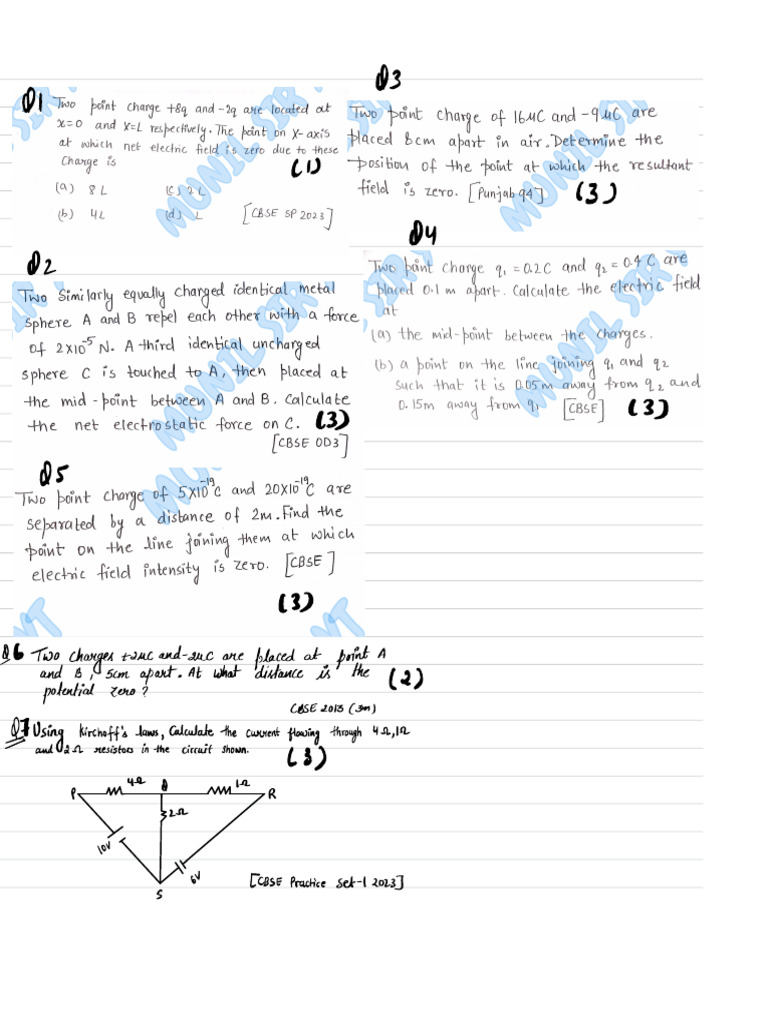 Q1 Two point charge +8q and -2q are located at
x=0 and x=L respectively. The point on X-axis
at which net electric field is zero due to these
Charge is (1)
(a) 8L (c) 2L
(b) 4L (d) L [CBSE SP 2023]
Q2
Two Similarly equally charged identical metal
sphere A and B repel each other with a force
of 2x10⁻⁵ N. A third identical uncharged
sphere C is touched to A, then placed at
the mid-point between A and B. Calculate
the net electrostatic force on C. (3)
[CBSE OD3]
Q3
Two point charge of 16μC and -9μC are
placed 8cm apart in air. Determine the
position of the point at which the resultant
field is zero. [Punjab 94] (3)
Q4
Two point charge q₁ = 0.2C and q₂ = 0.4C are
placed 0.1m apart. Calculate the electric field
at
(a) the mid-point between the charges.
(b) a point on the line joining q₁ and q₂
such that it is 0.05m away from q₂ and
0.15m away from q₁ [CBSE] (3)
Q5
Two point charge of 5X10⁻¹⁹C and 20X10⁻¹⁹C are
separated by a distance of 2m. Find the
point on the line joining them at which
electric field intensity is zero. [CBSE]
(3)
Q6 Two charges +2μC and -2μC are placed at point A
and B, 5cm apart. At what distance is the (2)
potential zero?
CBSE 2013 (3m)
Q7 Using Kirchoff's laws, Calculate the current flowing through 4Ω, 1Ω
and 2Ω resistors in the circuit shown. (3)
4Ω 1Ω
P Q R
2Ω
10V
6V
S
[CBSE Practice Set-1 2023]
MUNIL SIR
MUNIL SIR
MUNIL SIR
MUNIL SIR